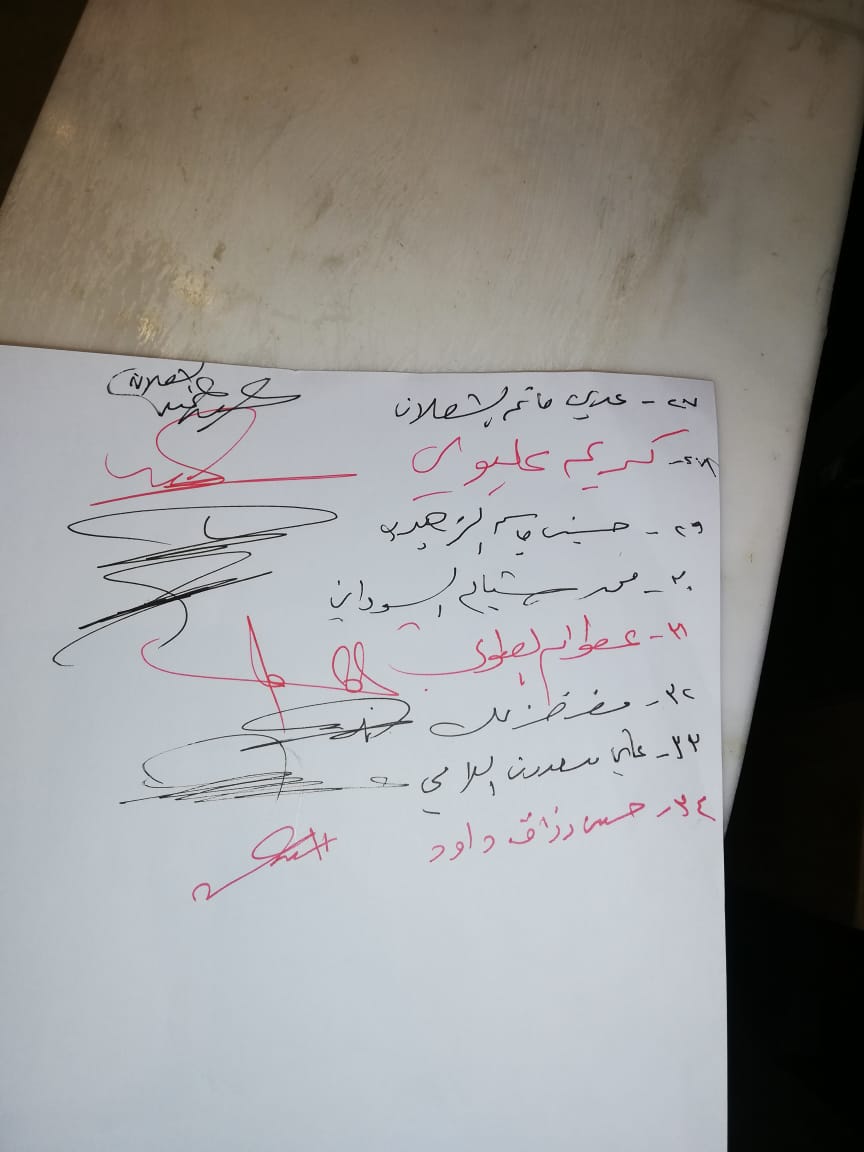 ٢٧- عدي حاتم الشعلان
٢٨- كريم عليوي
٢٩- حسين جاسم الزهيري
٣٠- محمد شياع السوداني
٣١- عطوان العطواني
٣٢-
٣٣- علي سعدون اللامي
٣٤- حسن رزاق داود